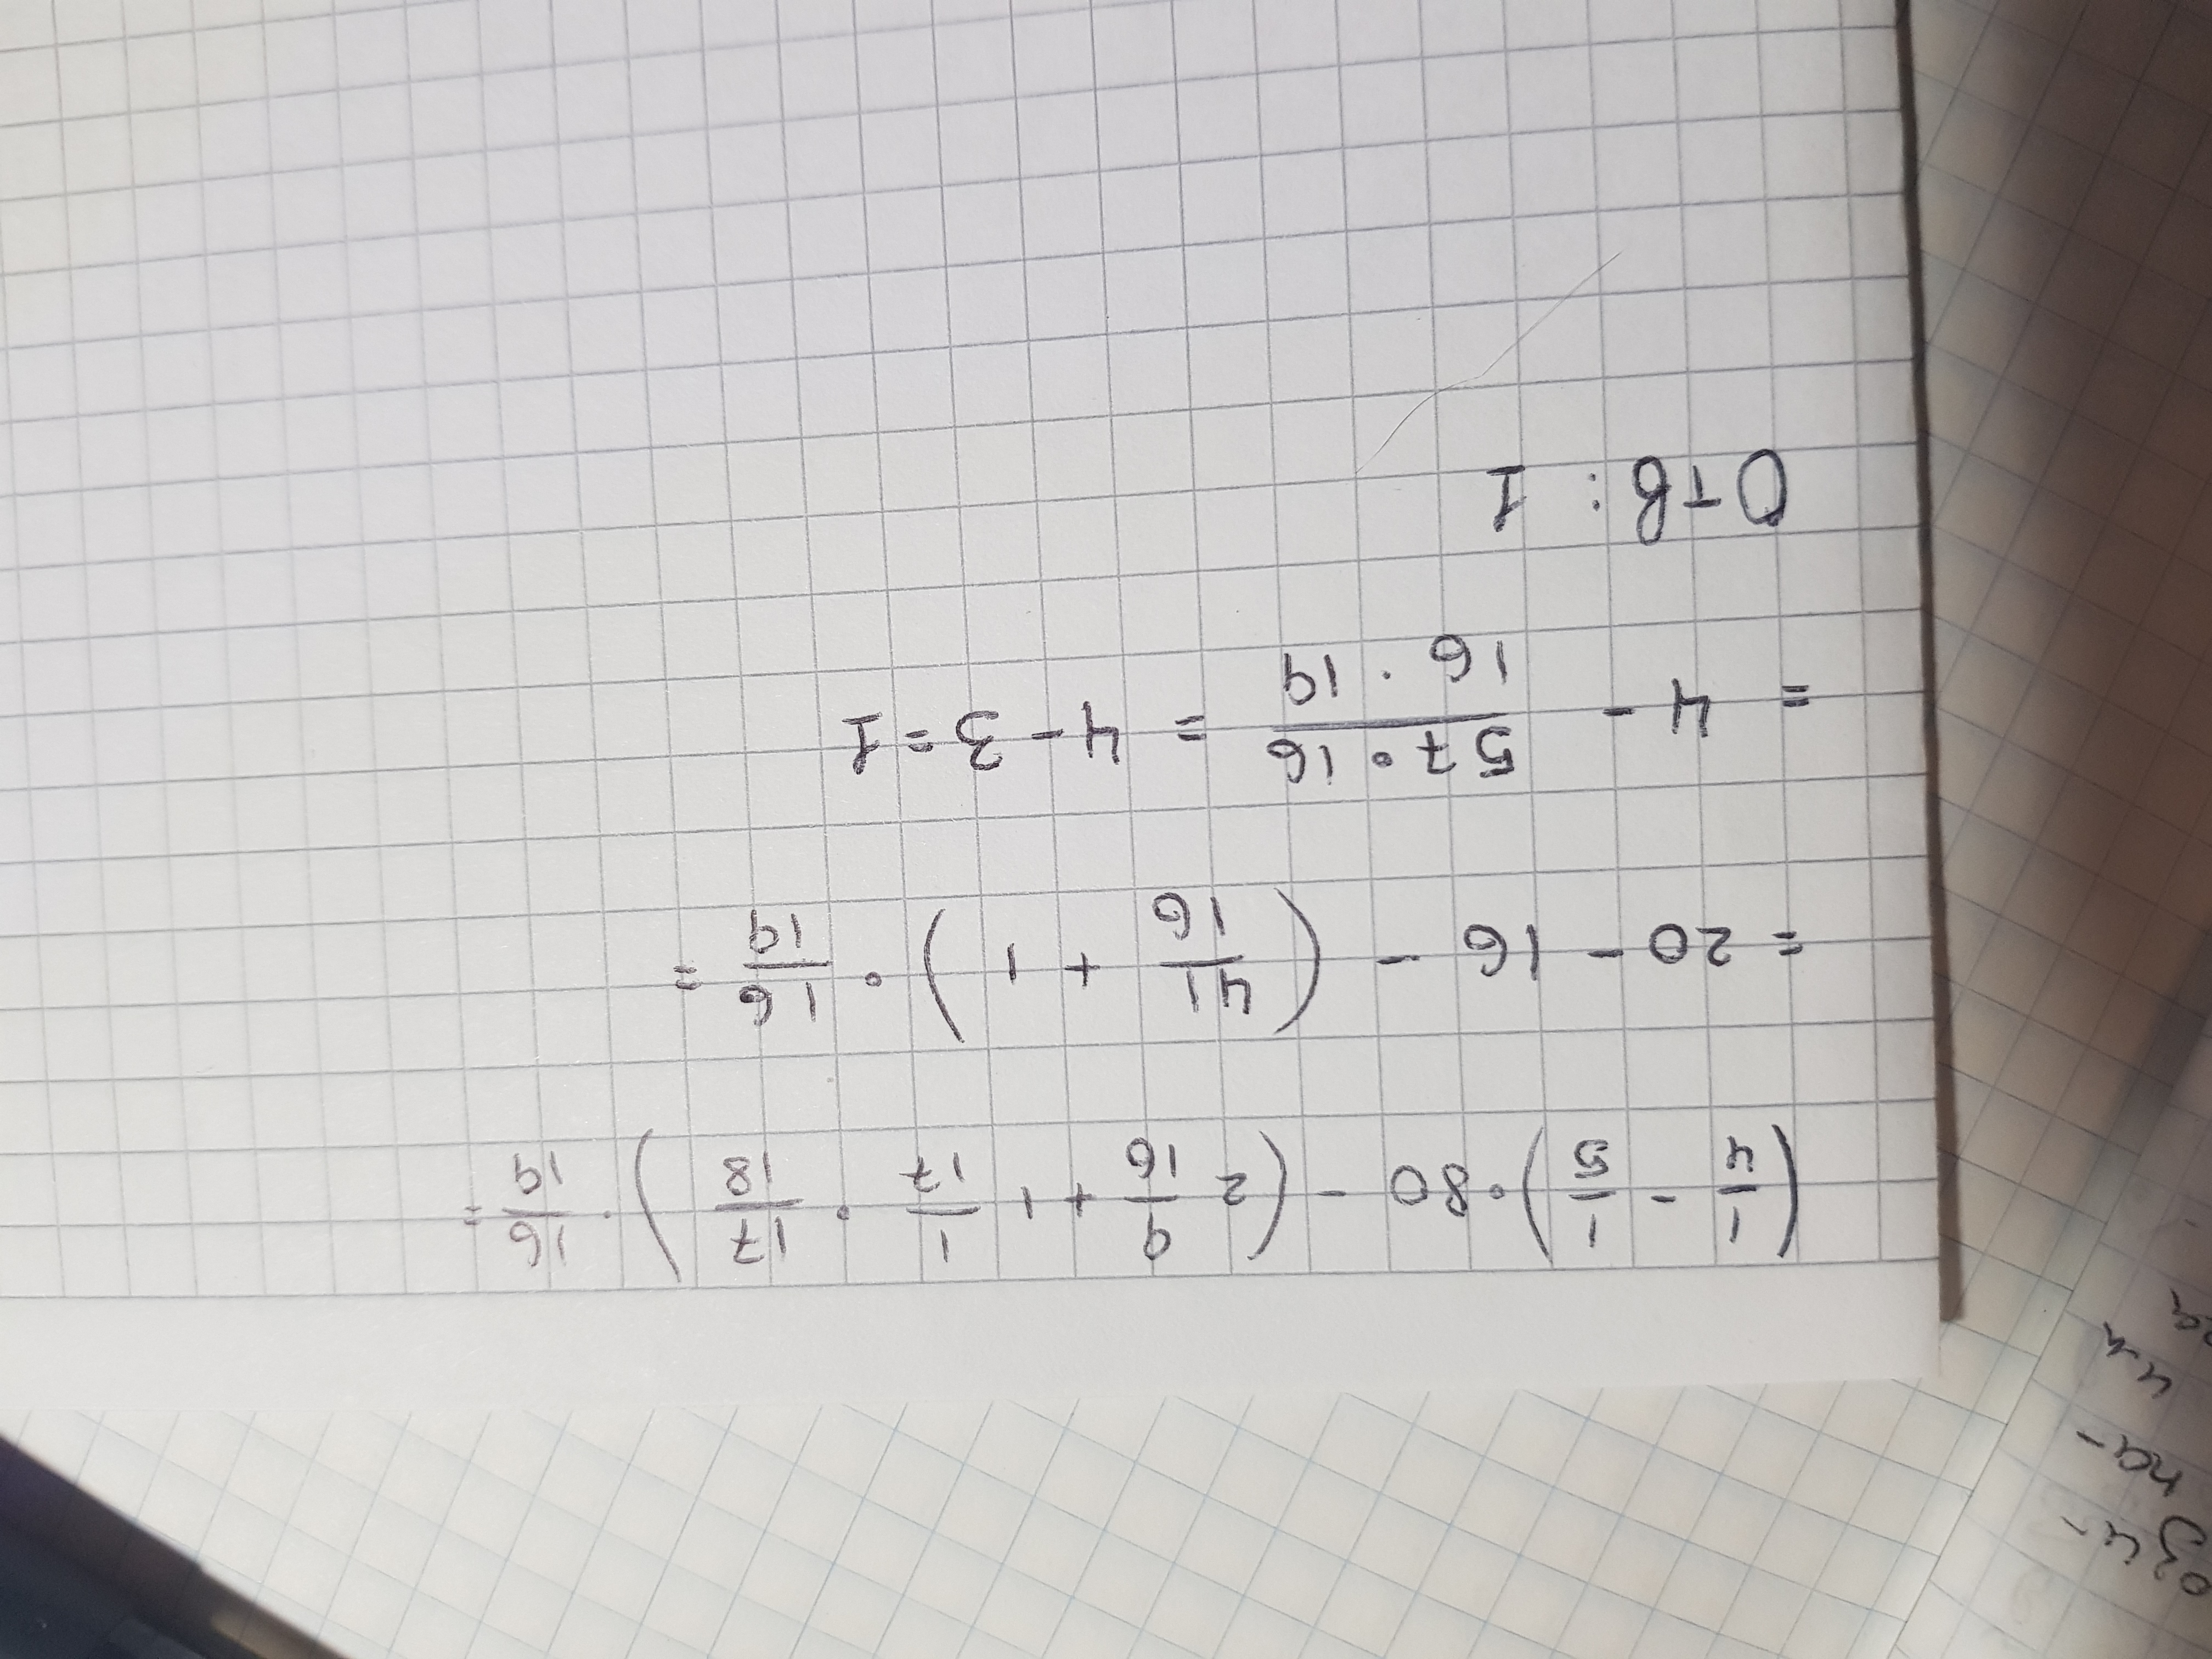 (1/4 - 1/5) · 80 - (2 9/16 + 1 1/17 · 17/18) · 16/19 =
= 20 - 16 - (41/16 + 1) · 16/19 =
= 4 - 57 · 16 / 16 · 19 = 4 - 3 = 1
Отв: 1